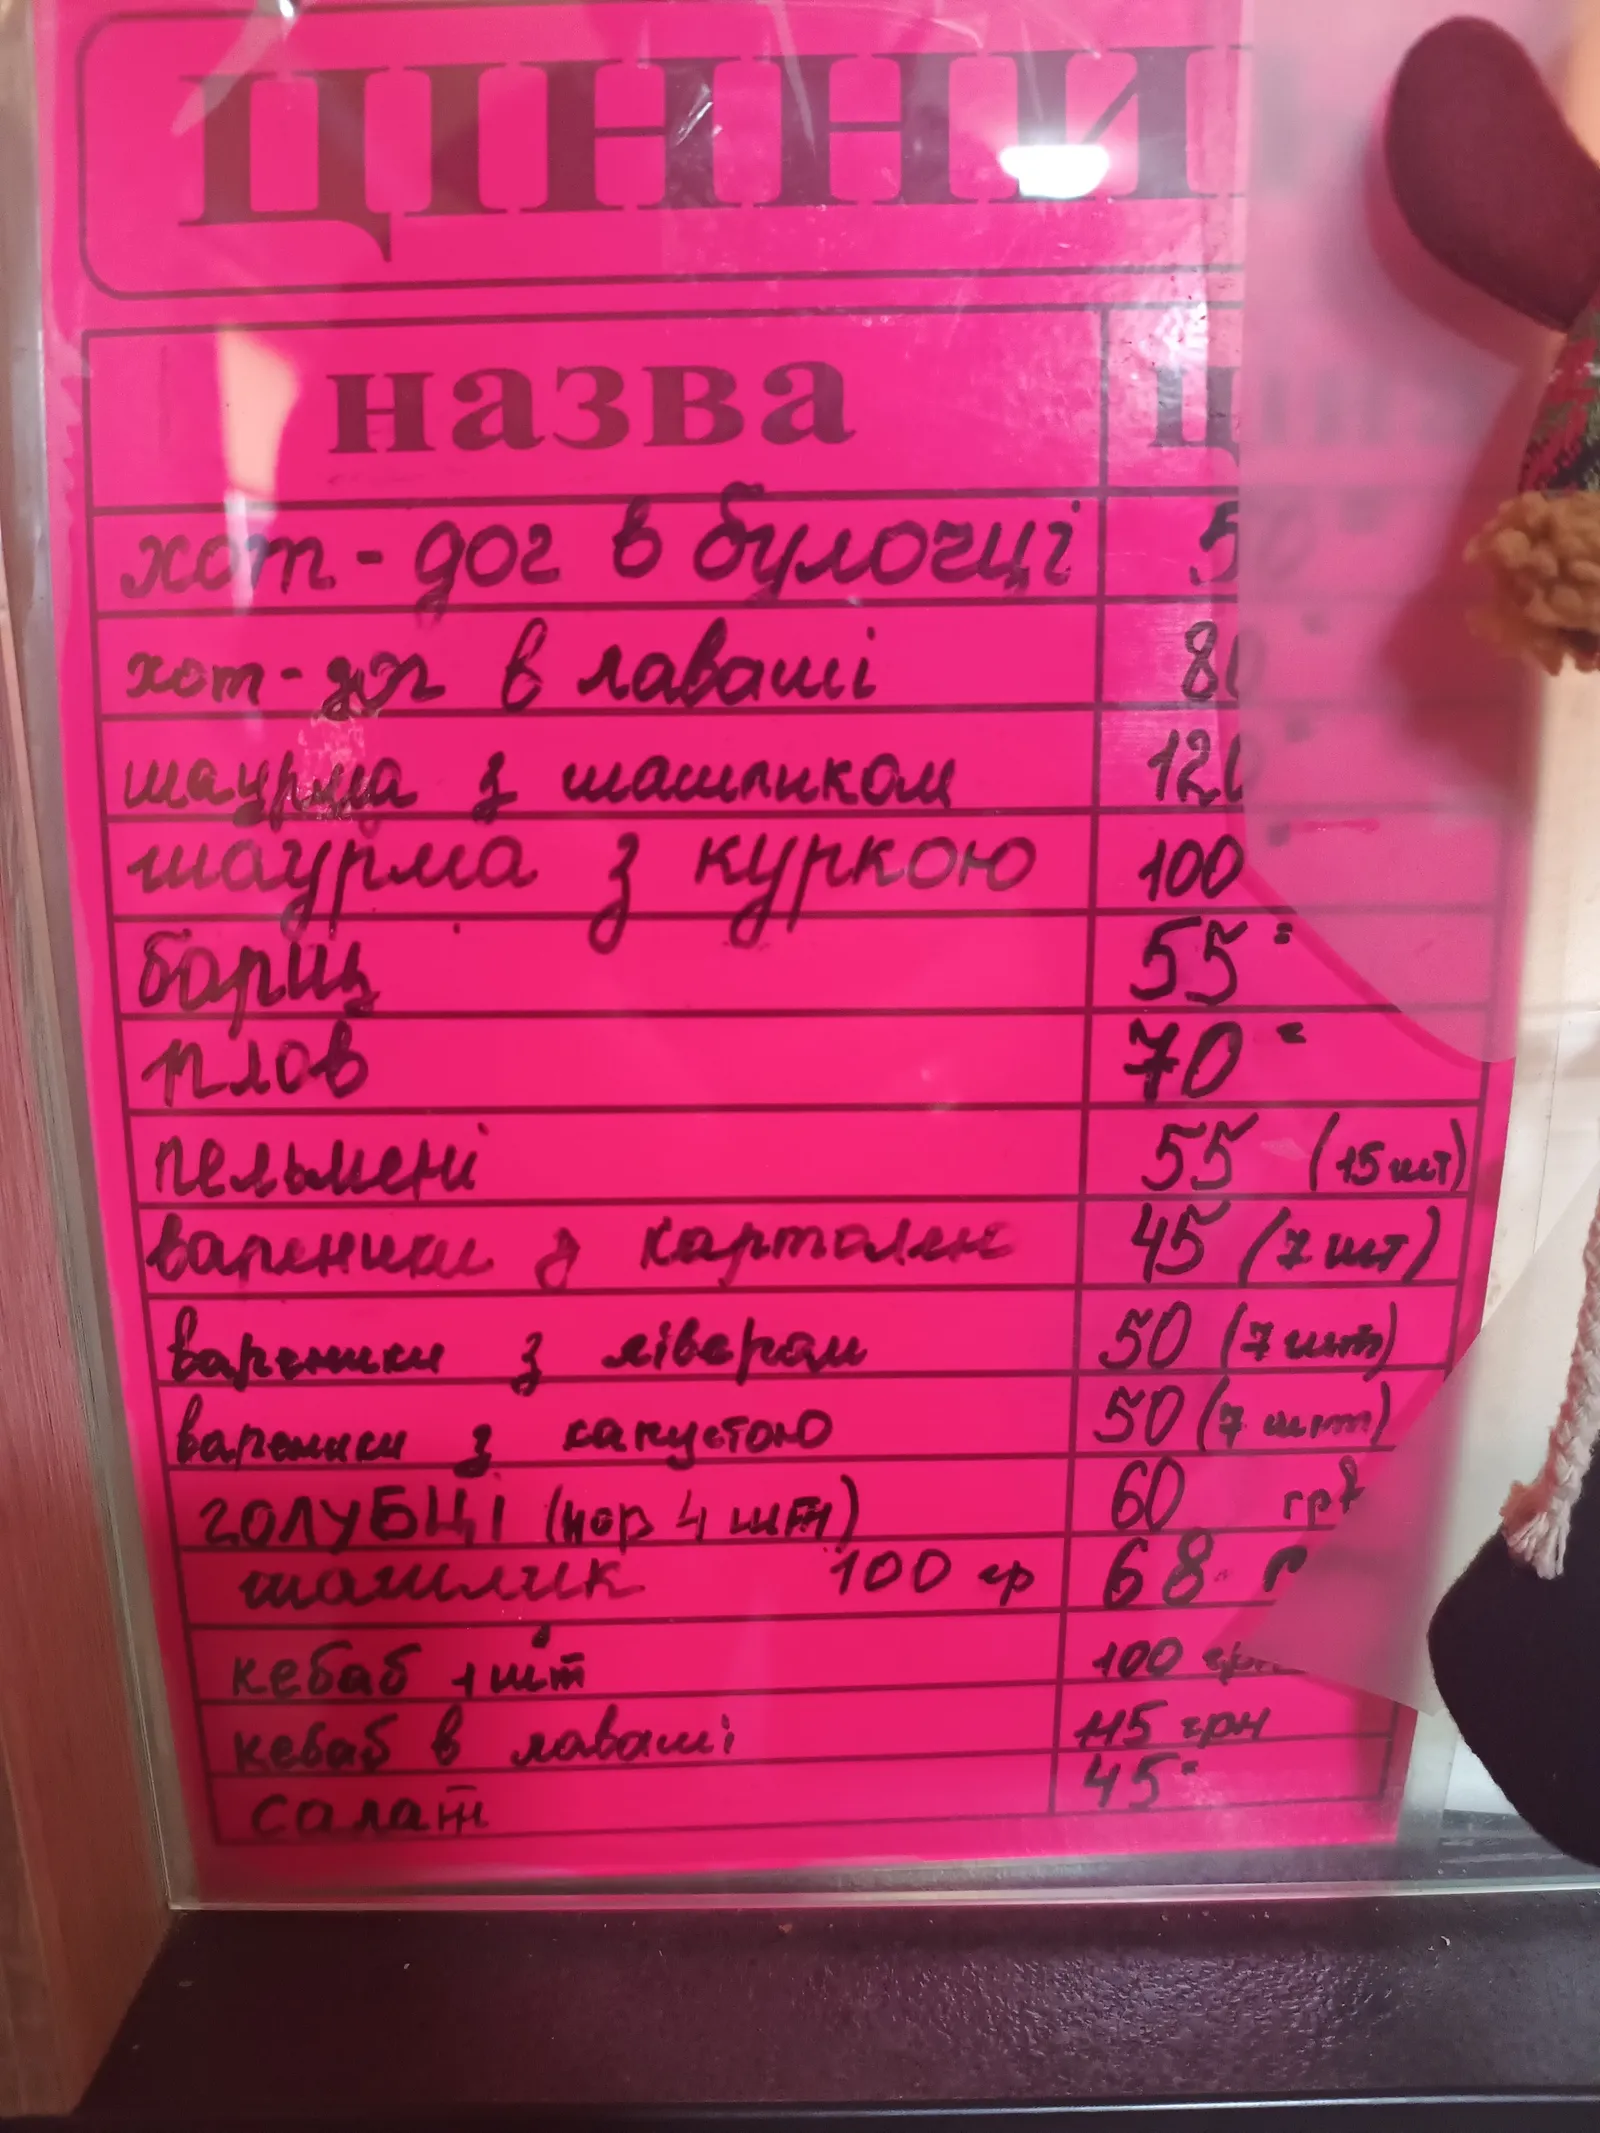 ЦІННИК
назва ціна
хот-дог в булочці 50 "
хот-дог в лаваші 80 "
шаурма з шашликом 120 "
шаурма з куркою 100 "
борщ 55 =
плов 70 =
пельмені 55 (15 шт)
вареники з картоплею 45 (7 шт)
вареники з лівером 50 (7 шт)
вареники з капустою 50 (7 шт)
ГОЛУБЦІ (пор 4 шт) 60
шашлик 100 гр 68
кебаб 1 шт 100 грн
кебаб в лаваші 115 грн
салат 45 "